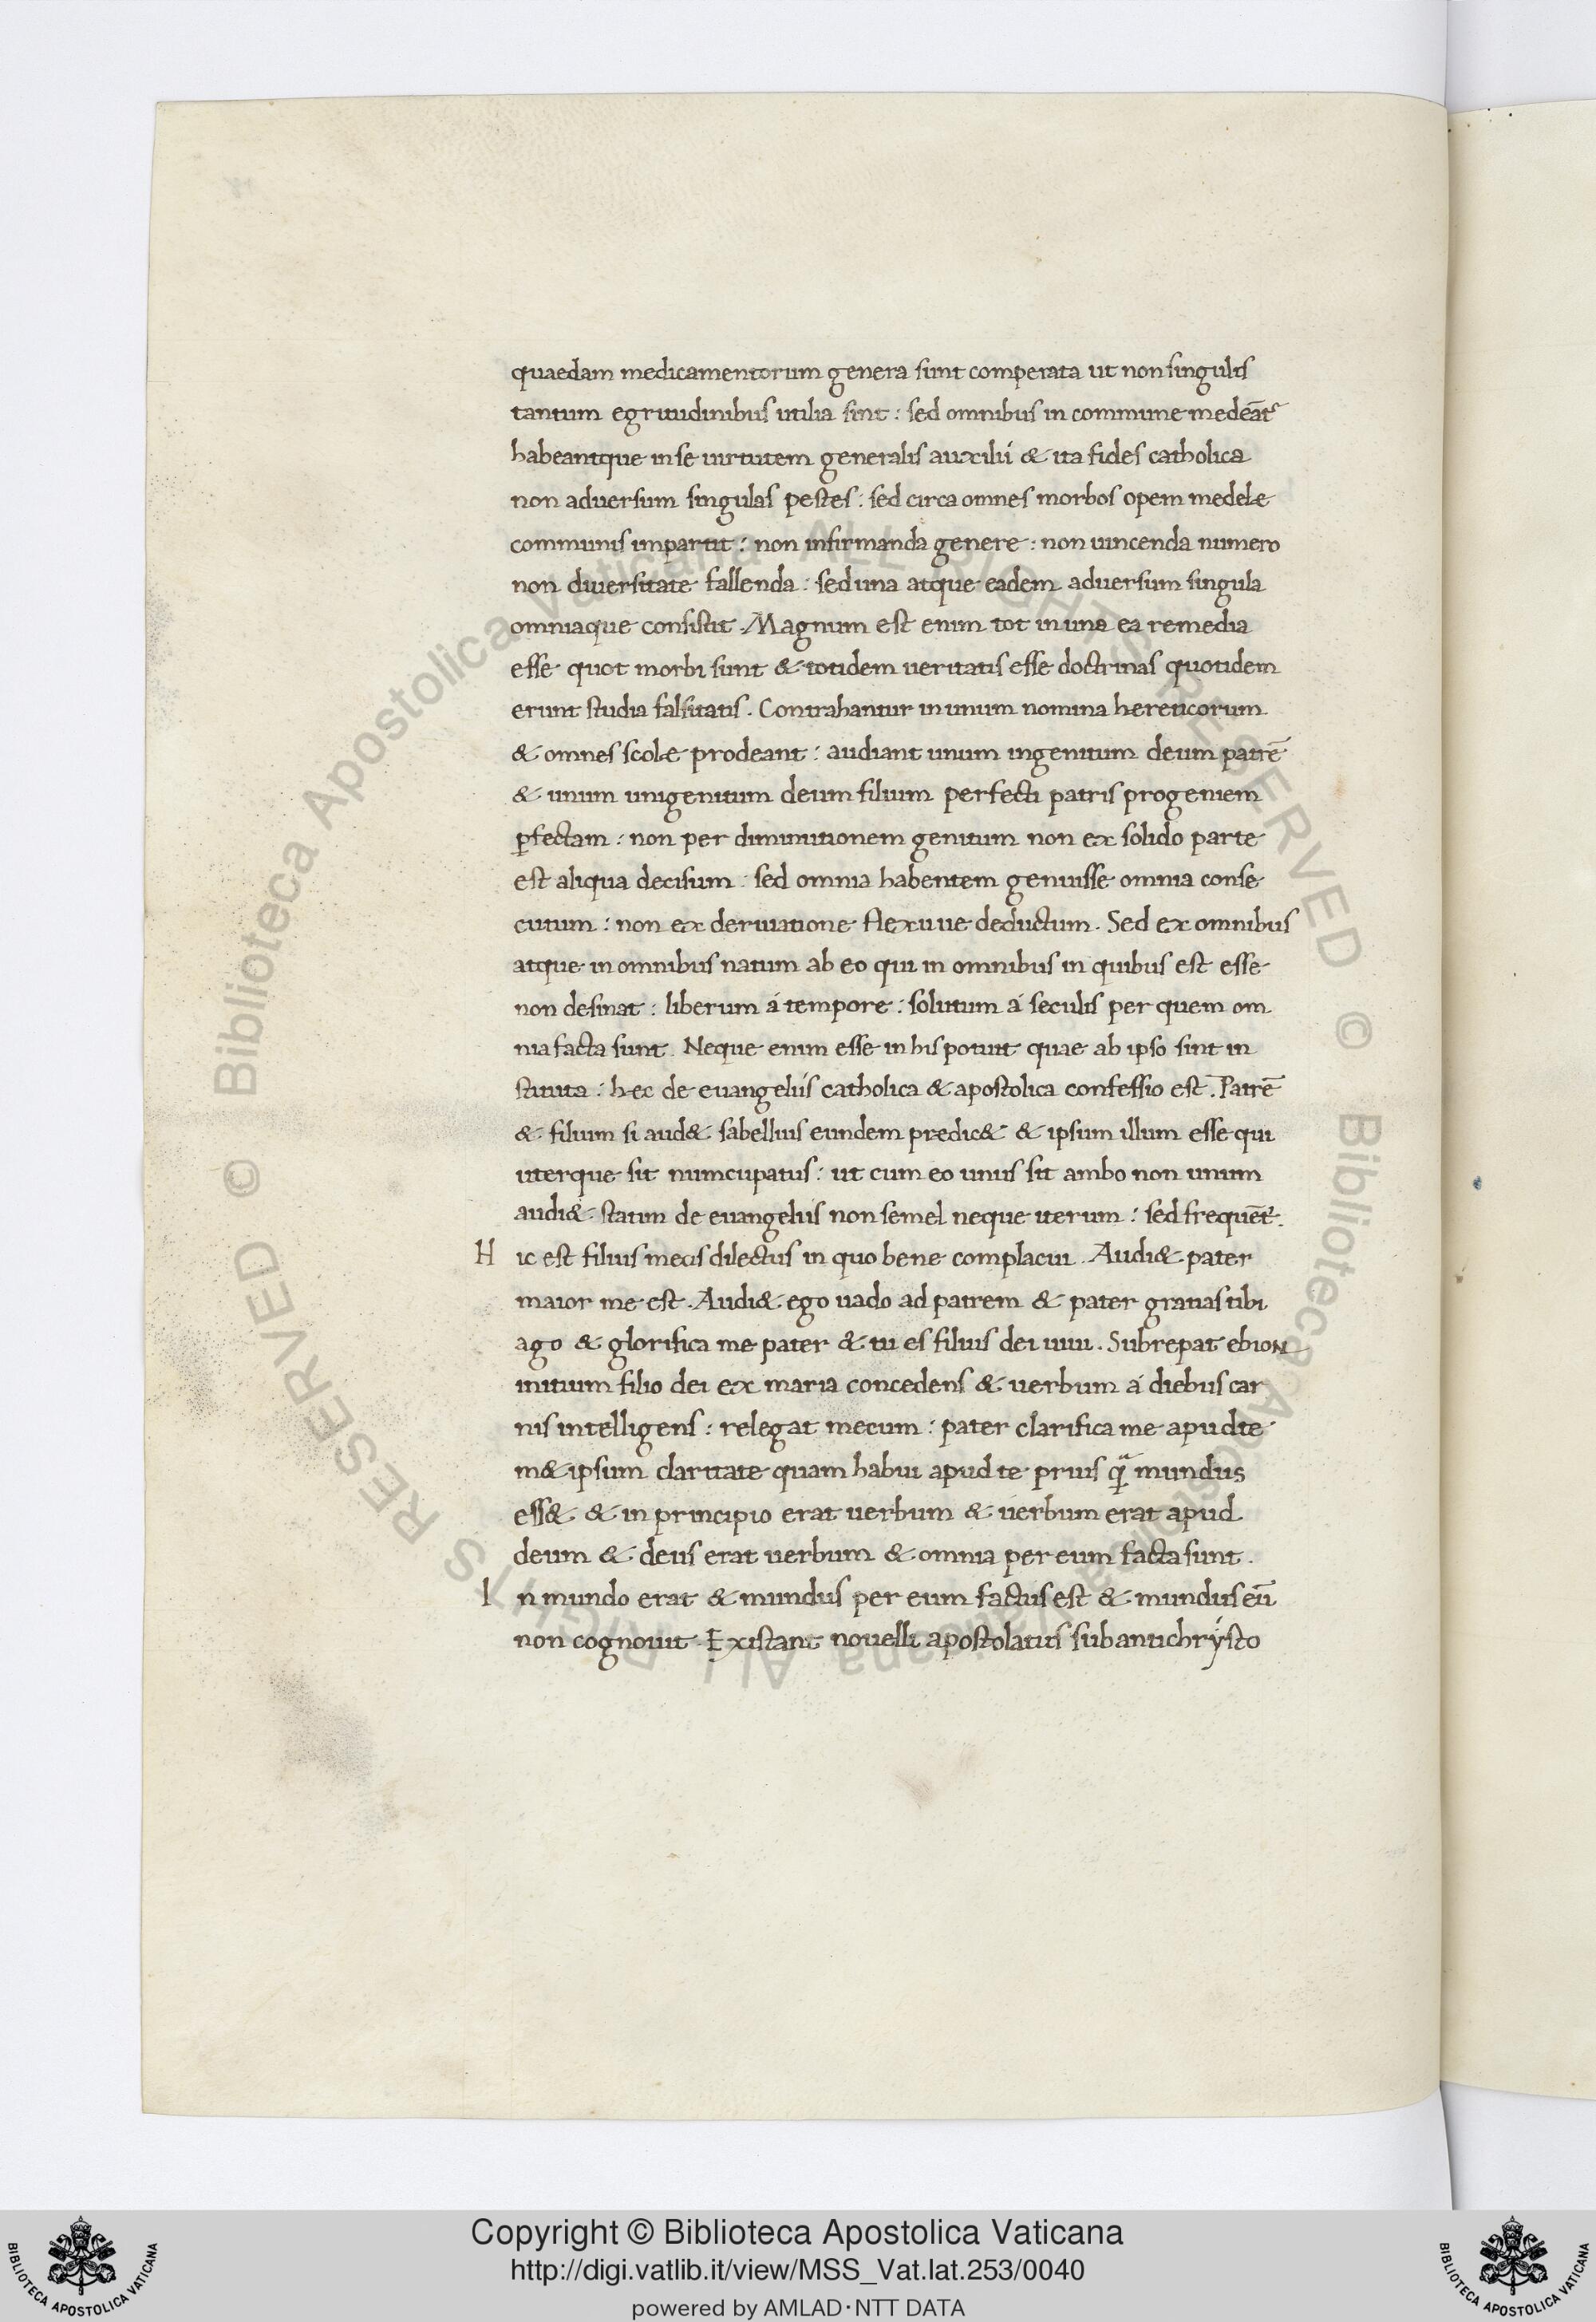 quaedam medicamentorum genera sunt comperata ut non singulis
tantum egritudinibus utilia sint : sed omnibus in commune medeāt᷑
habeantque in se uirtutem generalis auxilii & ita fides catholica
non aduersum singulas pestes : sed circa omnes morbos opem medelę
communis impartit : non infirmanda genere : non uincenda numero
non diuersitate fallenda : sed una atque eadem aduersum singula
omniaque consistit . Magnum est enim tot in una ea remedia
esse quot morbi sunt & totidem ueritatis esse doctrinas quotidem
erunt studia falsitatis . Contrahantur in unum nomina hereticorum
& omnes scolę prodeant : audiant unum ingenitum deum patrē
& unum unigenitum deum filium perfecti patris progeniem
ꝑfectam : non per diminutionem genitum non ex solido parte
est aliqua decisum : sed omnia habentem genuisse omnia conse
cutum : non ex deriuatione flexuue deductum . Sed ex omnibus
atque in omnibus natum ab eo qui in omnibus in quibus est esse
non desinat : liberum á tempore : solutum á seculis per quem om
nia facta sunt . Neque enim esse in his potuit quae ab ipso sint in
stituta : hęc de euangeliis catholica & apostolica confessio est . Patrē
& filium si aud& sabellius eundem prędic& & ipsum illum esse qui
uterque sit nuncupatus : ut cum eo unus sit ambo non unum
audi& statim de euangeliis non semel neque iterum : sed frequēt᷑.
H ic est filius meus dilectus in quo bene complacui . Audi& pater
maior me est . Audi& ego uado ad patrem & pater gratias tibi
ago & glorifica me pater & tu es filius dei uiui . Subrepat ebion
initium filio dei ex maria concedens & uerbum á diebus car
nis intelligens : relegat mecum : pater clarifica me apud te
m& ipsum claritate quam habui apud te prius q̣ͣ mundus
ess& & in principio erat uerbum & uerbum erat apud
deum & deus erat uerbum & omnia per eum facta sunt .
I n mundo erat & mundus per eum factus est & mundus eū
non cognouit . Existant nouelli apostolatus sub antichrysto
© Biblioteca Apostolica Vaticana ALL RIGHTS RESERVED © Biblioteca Apostolica Vaticana ALL RIGHTS RESERVED
BIBLIOTECA APOSTOLICA VATICANA
Copyright © Biblioteca Apostolica Vaticana
http://digi.vatlib.it/view/MSS_Vat.lat.253/0040
powered by AMLAD·NTT DATA
BIBLIOTECA APOSTOLICA VATICANA